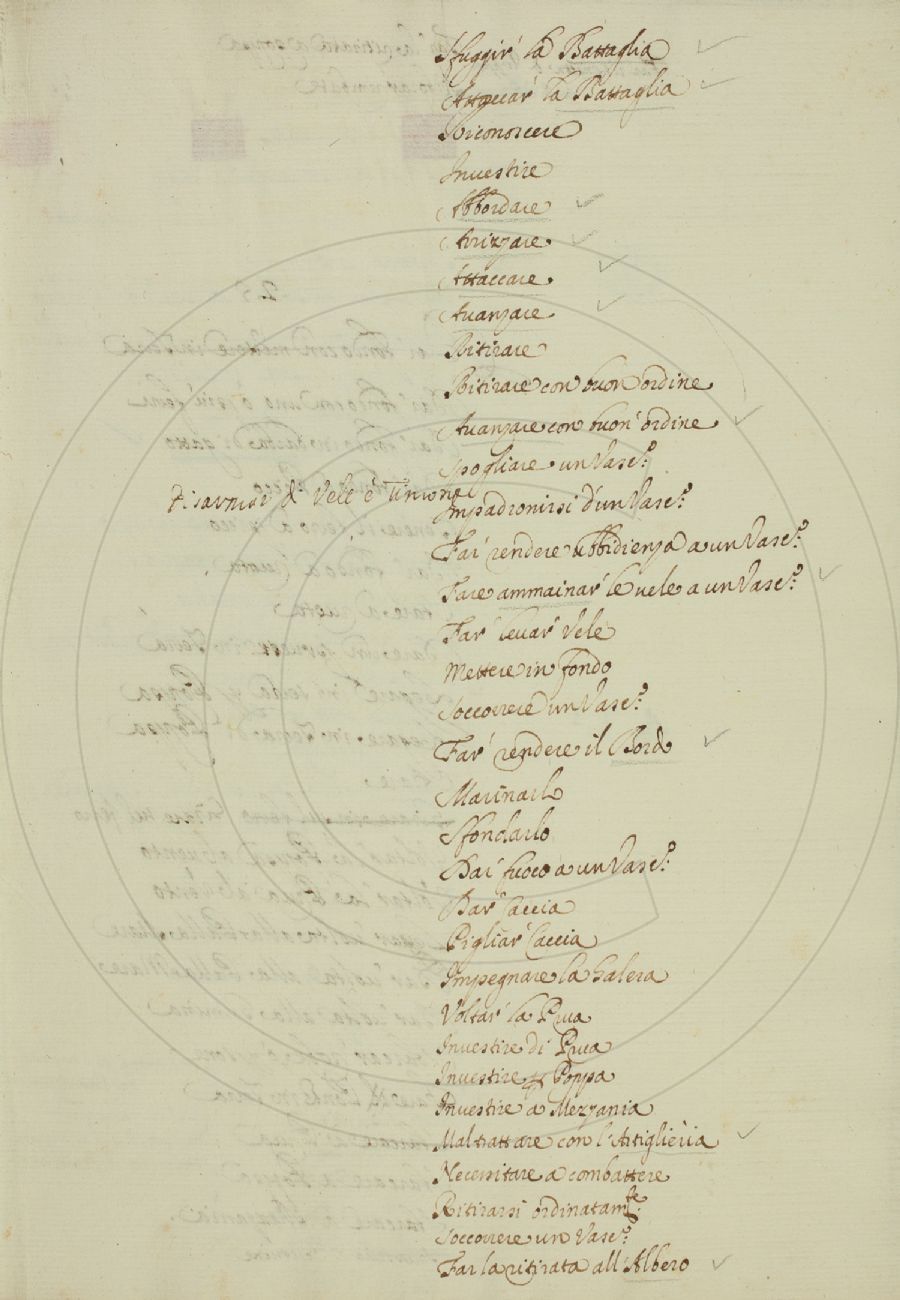 Sfuggir' la Battaglia
Attaccar' la Battaglia
Riconoscere
Investire
Abbordare
Arrizzare
Attaccare
Avanzare
Ritirare
Ritirare con buon ordine
Avanzare con buon' ordine
Spogliare un Vasc.º
Disarmisi di Vele è Timone
Impadronirsi d'un Vasc.º
Far rendere ubbidienza a un Vasc.º
Fare ammainar' le vele a un Vasc.º
Far' levar' Vele
Mettere in fondo
Soccorrere d'un Vasc.º
Far' rendere il Bordo
Marinarlo
Sfondarlo
Dar fuoco a un Vasc.º
Dar' Caccia
Pigliar' Caccia
Impegnare la Galera
Voltar' la Prua
Investire di Prua
Investire Poppa
Investire a Mezzania
Maltrattare con l'Artiglieria
Necessitare a combattere
Ritirarsi ordinatam.te
Soccorrere un Vasc.º
Far la ritirata all'Albero